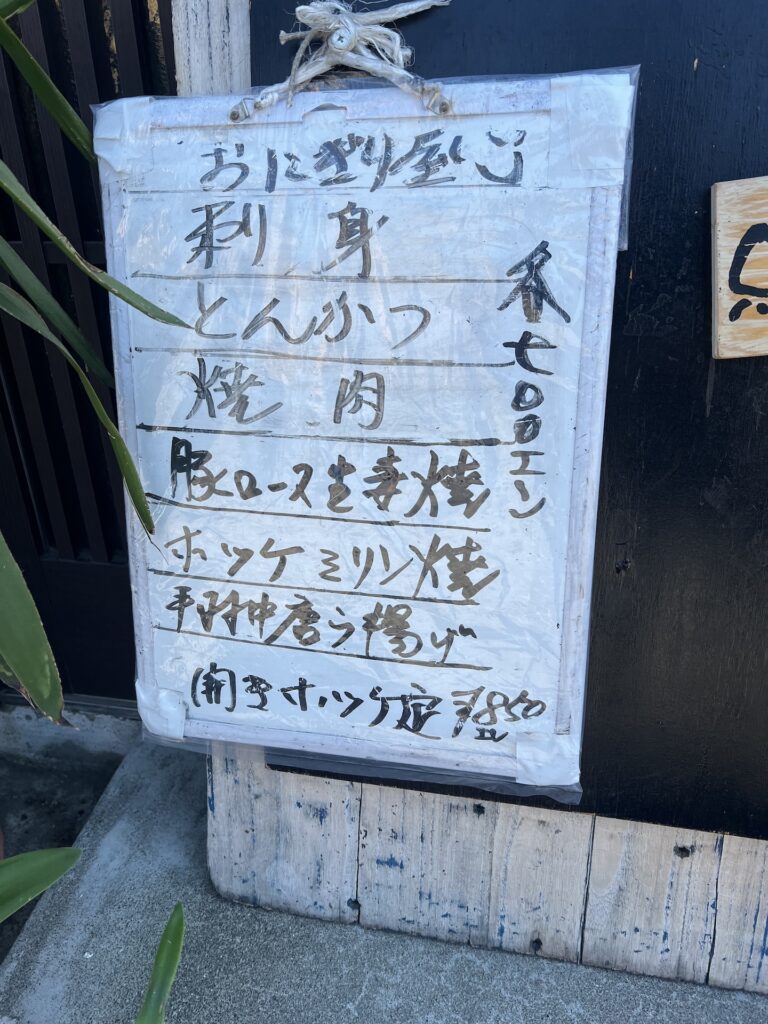 おにぎり屋いこ
刺身
とんかつ
焼肉
豚ロース生姜焼
ホッケミリン焼
手羽中唐う揚げ
各七〇〇エン
開きホッケ定
850